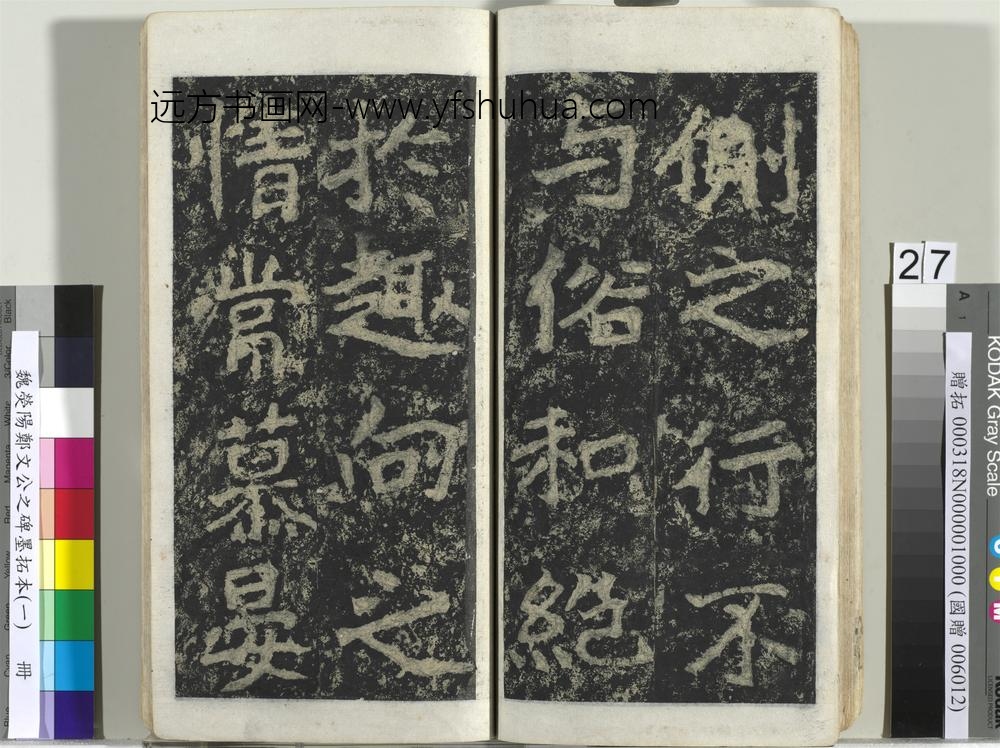 远方书画网-www.yfshuhua.com
側之行不
与俗和絶
於趣向之
情常慕晏
27
魏滎陽鄭文公之碑墨拓本(一) 冊
贈拓 000318N000001000 (國贈 006012)
KODAK Gray Scale
A 1
Black
3/Color
White
Magenta
Red
Yellow
Green
Cyan
Blue